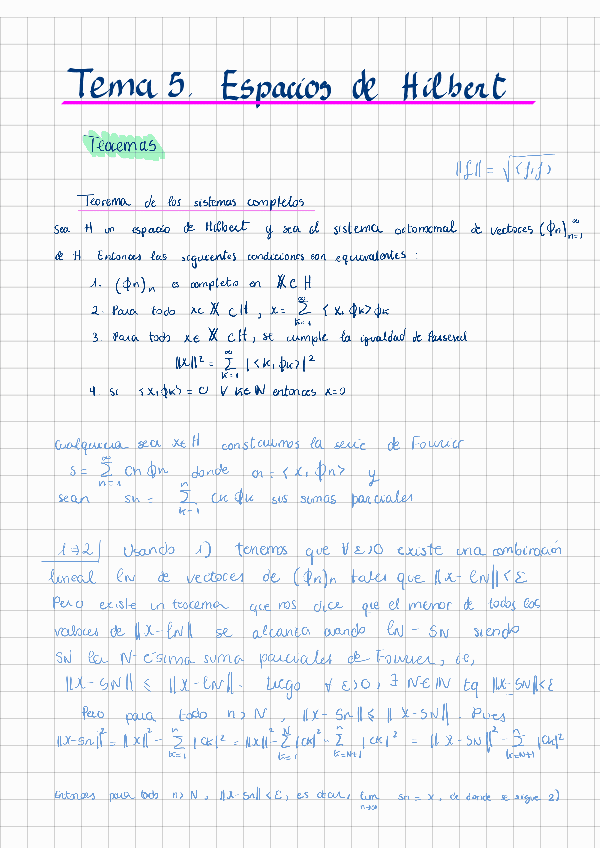 Tema 5. Espacios de Hilbert
Teoremas
||f|| = √⟨f,f⟩
Teorema de los sistemas completos
sea H un espacio de Hilbert y sea el sistema ortonormal de vectores (ϕn)_{n=1}^∞
de H Entonces las siguientes condiciones son equivalentes:
1. (ϕn)n es completo en X ⊂ H
2. Para todo x∈ X ⊂ H, x = Σ_{k=1}^∞ ⟨x, ϕk⟩ϕk
3. Para todo x∈ X ⊂ H, se cumple la igualdad de Parseval
||x||² = Σ_{k=1}^∞ |⟨x, ϕk⟩|²
4. si ⟨x, ϕk⟩ = 0 ∀ k∈N entonces x=0
Cualquiera sea x∈H construimos la serie de Fourier
s = Σ_{n=1}^∞ cn ϕn donde cn = ⟨x, ϕn⟩ y
sean sn = Σ_{k=1}^n ck ϕk sus sumas parciales
1→2| Usando 1) tenemos que ∀ε>0 existe una combinación
lineal lN de vectores de (ϕn)n tales que ||x - lN|| < ε
Pero existe un teorema que nos dice que el menor de todos los
valores de ||x - lN|| se alcanza cuando lN = SN siendo
SN la N-ésima suma parciales de Fourier, ie,
||x - SN|| ≤ ||x - lN||. Luego ∀ ε>0, ∃ N∈N tq ||x - SN|| < ε
Pero para todo n>N, ||x - Sn|| ≤ ||x - SN|| Pues
||x - Sn||² = ||x||² - Σ_{k=1}^n |ck|² = ||x||² - Σ_{k=1}^N |ck|² - Σ_{k=N+1}^n |ck|² = ||x - SN||² - Σ_{k=N+1}^n |ck|²
Entonces para todo n>N, ||x - Sn|| < ε, es decir, lim_{n→∞} sn = x, de donde se sigue 2)